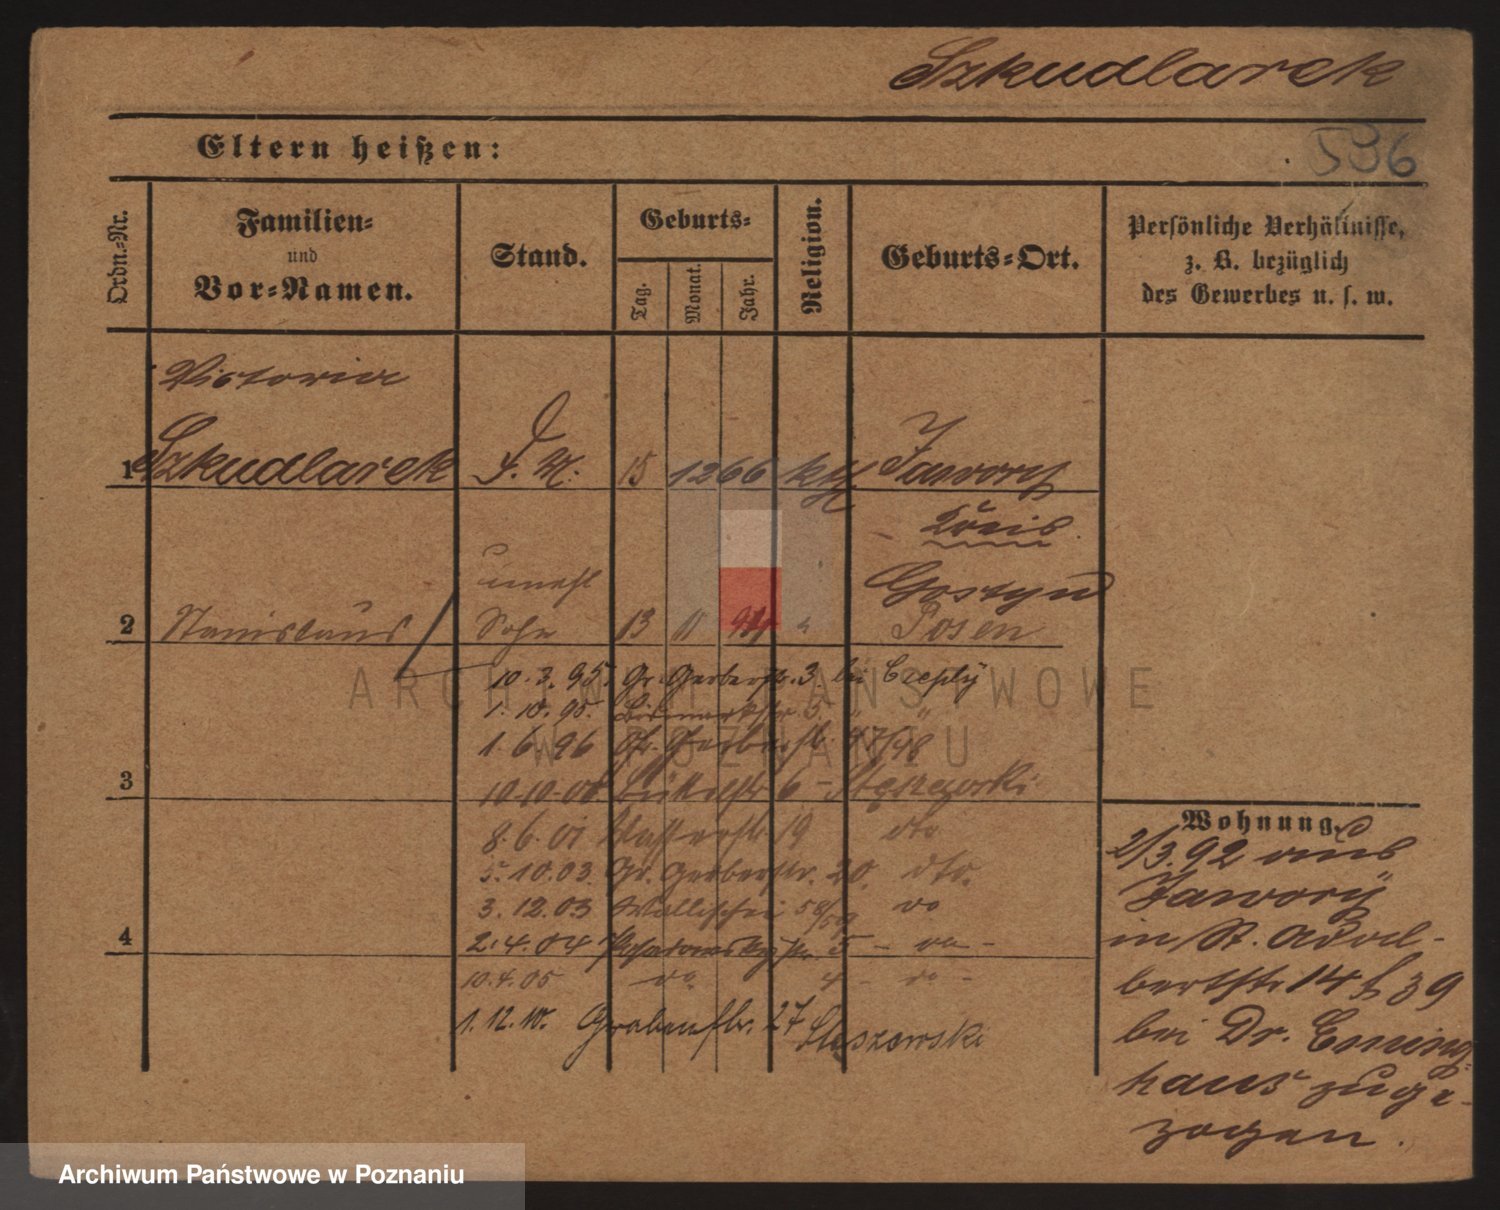 Szkudlarek
Eltern heißen:
596
Ordn.-Nr.
Familien-
und
Vor-Namen.
Stand.
Geburts-
Tag.
Monat.
Jahr.
Religion.
Geburts-Ort.
Persönliche Verhältnisse,
z. B. bezüglich
des Gewerbes u. s. w.
Victoria
1 Szkudlarek D. M. 15 12 66 kth Jawory
Kreis
Gostyn
unehl
2 Stanislaus Sohn 13 11 94 " Posen
10.3.95. Gr. Gerberstr. 3. bei
1.10.95. Bismarckstr 5. "
1.6.96 Gr. Gerberstr. 47/48
3
10.10.00. 6 - Stęszewski
8.6.01 Wasserstr 19 dto
5.10.03. Gr. Gerberstr. 20. dto.
3.12.03 Wallischei 58/59 do
4
2.4.04 5 - do -
10.4.05 do 4 - do -
1.12.10. Grabenstr. 27 Stęszewski
Wohnung.
2/3.92 aus
Jawory
in St. Adal-
bertstr. 14 39
bei Dr. Eming-
haus zuge-
zogen.
ARCHIWUM PAŃSTWOWE
W POZNANIU
Archiwum Państwowe w Poznaniu